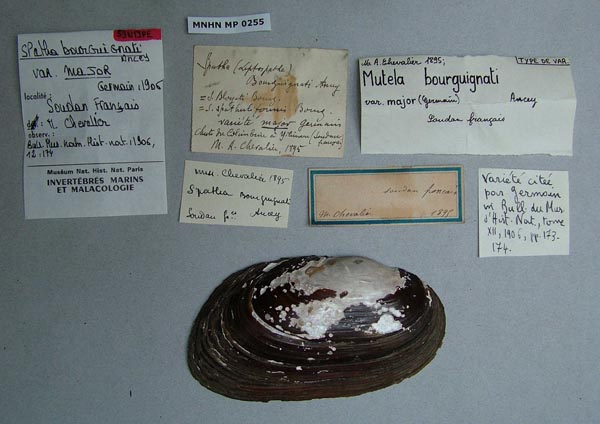 MNHN MP 0255
SYNTYPE
Spatha bourguignati
ANCEY
var. MAJOR
Germain, 1906
localité :
Soudan Français
M. Chevalier
observ. :
Bull. Mus. natn. Hist. nat. 1906,
12, 174
Muséum Nat. Hist. Nat. Paris
INVERTÉBRÉS MARINS
ET MALACOLOGIE
Spatha (Leptospatha)
Bourguignati Ancey
= S. Bourg.
= S. spathuliformis Bourg.
variété major Germain
(Soudan
français)
M. A. Chevalier, 1895
M. A. Chevalier 1895;
TYPE DE VAR.
Mutela bourguignati
var. major (Germain) Ancey
Soudan français
Mr. Chevalier 1895
Spatha Bourguignati
Soudan fçs Ancey
Soudan francais
M. Chevalier 1895
Variété citée
par Germain
in Bull. du Mus
d'Hist. Nat., tome
XII, 1906, pp. 173-
174.